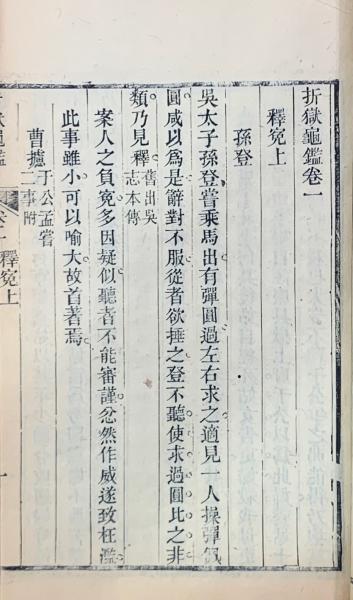 折獄龜鑑卷一
釋冤上
孫登
吳太子孫登嘗乘馬出有彈圓過左右求之適見一人操彈佩
圓咸以為是辭對不服從者欲捶之登不聽使求過圓比之非
類乃見釋舊出吳志本傳
案人之負冤多因疑似聽者不能審謹忿然作威遂致枉濫
此事雖小可以喻大故首著焉
曹攄于公孟嘗二事附
卷一 釋冤上
一